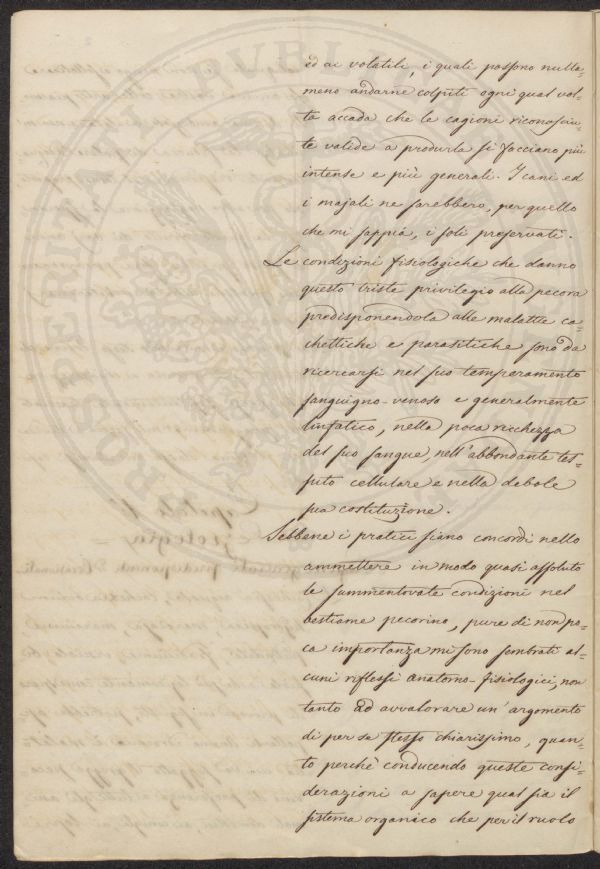 ed ai volatili, i quali possono nulla=
meno andarne colpiti ogni qual vol=
ta accada che le cagioni riconosciu=
te valide a produrla si facciano più
intense e più generali. I cani ed
i majali ne sarebbero, per quello
che mi sappia, i soli preservati.
Le condizioni fisiologiche che danno
questo triste privilegio alla pecora
predisponendola alle malattie ca=
chettiche e parasitiche sono da
ricercarsi nel suo temperamento
sanguigno-venoso e generalmente
linfatico, nella poca ricchezza
del suo sangue, nell'abbondante tes=
suto cellulare e nella debole
sua costituzione.
Sebbene i pratici siano concordi nello
ammettere in modo quasi assoluto
le summentovate condizioni nel
bestiame pecorino, pure di non po=
ca importanza mi sono sembrati al=
cuni riflessi anatomo-fisiologici, non
tanto ad avvalorare un'argomento
di per se stesso chiarissimo, quan=
to perchè conducendo queste consi=
derazioni a sapere qual sia il
sistema organico che per il ruolo